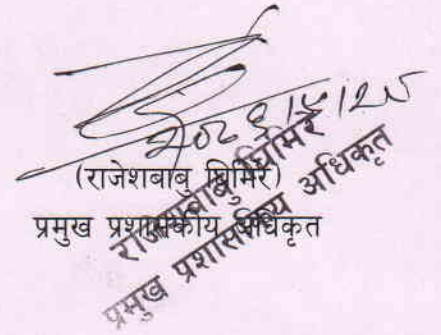 (राजेशबाबु घिमिरे)
प्रमुख प्रशासकीय अधिकृत
राजेशबाबु घिमिरे
प्रमुख प्रशासकीय अधिकृत